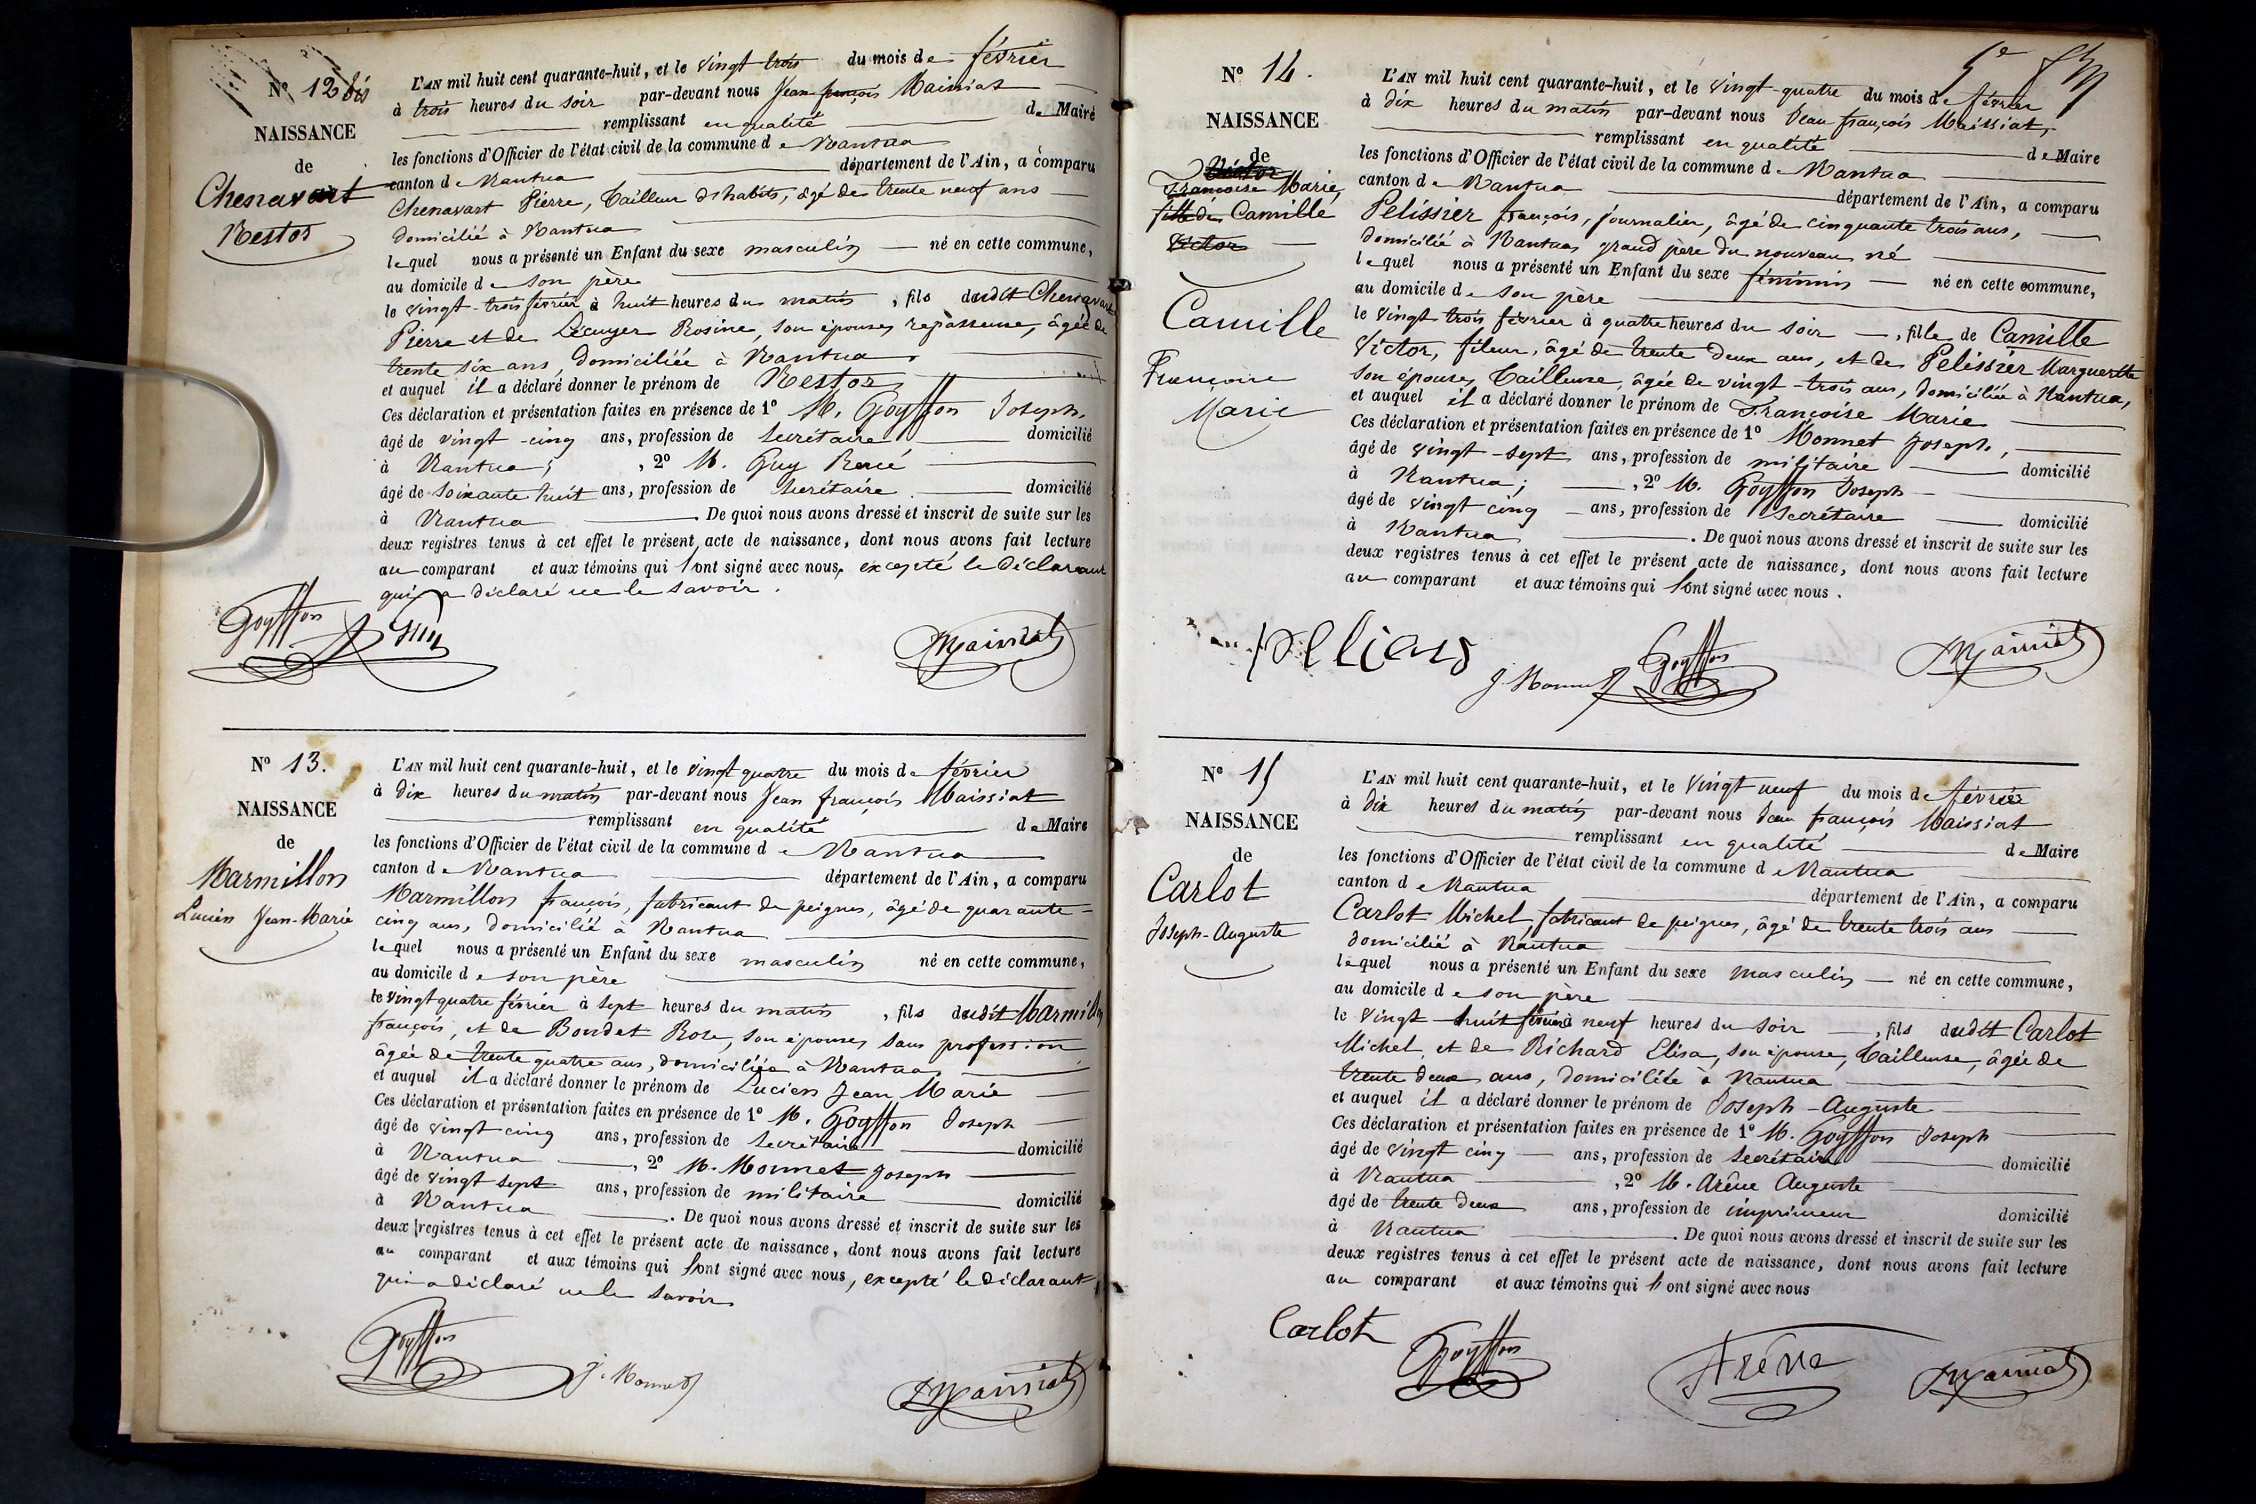 N° 12 bis
NAISSANCE
de
Chenavart
Nestor
L'AN mil huit cent quarante-huit, et le vingt trois du mois de février
à trois heures du soir par-devant nous Jean françois Maissiat
remplissant en qualité de Maire
les fonctions d'Officier de l'état civil de la commune de Nantua
canton de Nantua département de l'Ain, a comparu
Chenavart Pierre, Tailleur d'habits, âgé de trente neuf ans
domicilié à Nantua
lequel nous a présenté un Enfant du sexe masculin né en cette commune,
au domicile de son père
le vingt-trois février à huit heures du matin, fils dudit Chenavart
Pierre et de Lécuyer Rosine, son épouse, repasseuse, âgée de
trente six ans, domiciliée à Nantua.
et auquel il a déclaré donner le prénom de Nestor
Ces déclaration et présentation faites en présence de 1° M. Goyffon Joseph,
âgé de vingt-cinq ans, profession de secrétaire domicilié
à Nantua; , 2° M. Guy René
âgé de soixante huit ans, profession de secrétaire domicilié
à Nantua . De quoi nous avons dressé et inscrit de suite sur les
deux registres tenus à cet effet le présent acte de naissance, dont nous avons fait lecture
au comparant et aux témoins qui l'ont signé avec nous, excepté le déclarant
qui a déclaré ne le savoir.
Goyffon Guy Maissiat
N° 13.
NAISSANCE
de
Marmillon
Lucien Jean-Marie
L'AN mil huit cent quarante-huit, et le vingt quatre du mois de février
à dix heures du matin par-devant nous Jean françois Maissiat
remplissant en qualité de Maire
les fonctions d'Officier de l'état civil de la commune de Nantua
canton de Nantua département de l'Ain, a comparu
Marmillon françois, fabricant de peignes, âgé de quarante-
cinq ans, domicilié à Nantua
lequel nous a présenté un Enfant du sexe masculin né en cette commune,
au domicile de son père
le vingt quatre février à sept heures du matin, fils dudit Marmillon
françois, et de Boudet Rose, son épouse, sans profession
âgée de trente quatre ans, domiciliée à Nantua
et auquel il a déclaré donner le prénom de Lucien Jean Marie
Ces déclaration et présentation faites en présence de 1° M. Goyffon Joseph
âgé de vingt cinq ans, profession de secrétaire domicilié
à Nantua , 2° M. Monnet Joseph
âgé de vingt sept ans, profession de militaire domicilié
à Nantua . De quoi nous avons dressé et inscrit de suite sur les
deux registres tenus à cet effet le présent acte de naissance, dont nous avons fait lecture
au comparant et aux témoins qui l'ont signé avec nous, excepté le déclarant
qui a déclaré ne le savoir
Goyffon J. Monnet Maissiat
5e
N° 14.
NAISSANCE
de
Victor
Françoise Marie,
fille de Camille
Victor
Camille
Françoise
Marie
L'AN mil huit cent quarante-huit, et le vingt-quatre du mois de février
à dix heures du matin par-devant nous Jean françois Maissiat,
remplissant en qualité de Maire
les fonctions d'Officier de l'état civil de la commune de Nantua
canton de Nantua département de l'Ain, a comparu
Pelissier françois, journalier, âgé de cinquante trois ans,
domicilié à Nantua, grand père du nouveau né
lequel nous a présenté un Enfant du sexe féminin né en cette commune,
au domicile de son père
le vingt trois février à quatre heures du soir , fille de Camille
Victor, fileur, âgé de trente deux ans, et de Pelissier Marguerite
son épouse, Tailleuse, âgée de vingt-trois ans, domiciliée à Nantua,
et auquel il a déclaré donner le prénom de Françoise Marie
Ces déclaration et présentation faites en présence de 1° Monnet Joseph,
âgé de vingt-sept ans, profession de militaire domicilié
à Nantua; , 2° M. Goyffon Joseph
âgé de vingt cinq ans, profession de secrétaire domicilié
à Nantua . De quoi nous avons dressé et inscrit de suite sur les
deux registres tenus à cet effet le présent acte de naissance, dont nous avons fait lecture
au comparant et aux témoins qui l'ont signé avec nous.
J Monnet Goyffon Maissiat
N° 15
NAISSANCE
de
Carlot
Joseph-Auguste
L'AN mil huit cent quarante-huit, et le vingt neuf du mois de février
à dix heures du matin par-devant nous Jean françois Maissiat
remplissant en qualité de Maire
les fonctions d'Officier de l'état civil de la commune de Nantua
canton de Nantua département de l'Ain, a comparu
Carlot Michel, fabricant de peignes, âgé de trente trois ans
domicilié à Nantua
lequel nous a présenté un Enfant du sexe masculin né en cette commune,
au domicile de son père
le vingt-huit février à neuf heures du soir , fils dudit Carlot
Michel, et de Richard Elisa, son épouse, Tailleuse, âgée de
trente deux ans, domiciliée à Nantua
et auquel il a déclaré donner le prénom de Joseph-Auguste
Ces déclaration et présentation faites en présence de 1° M. Goyffon Joseph
âgé de vingt cinq ans, profession de secrétaire domicilié
à Nantua , 2° M. Arène Auguste
âgé de trente deux ans, profession de imprimeur domicilié
à Nantua . De quoi nous avons dressé et inscrit de suite sur les
deux registres tenus à cet effet le présent acte de naissance, dont nous avons fait lecture
au comparant et aux témoins qui l'ont signé avec nous
Carlot Goyffon Arène Maissiat